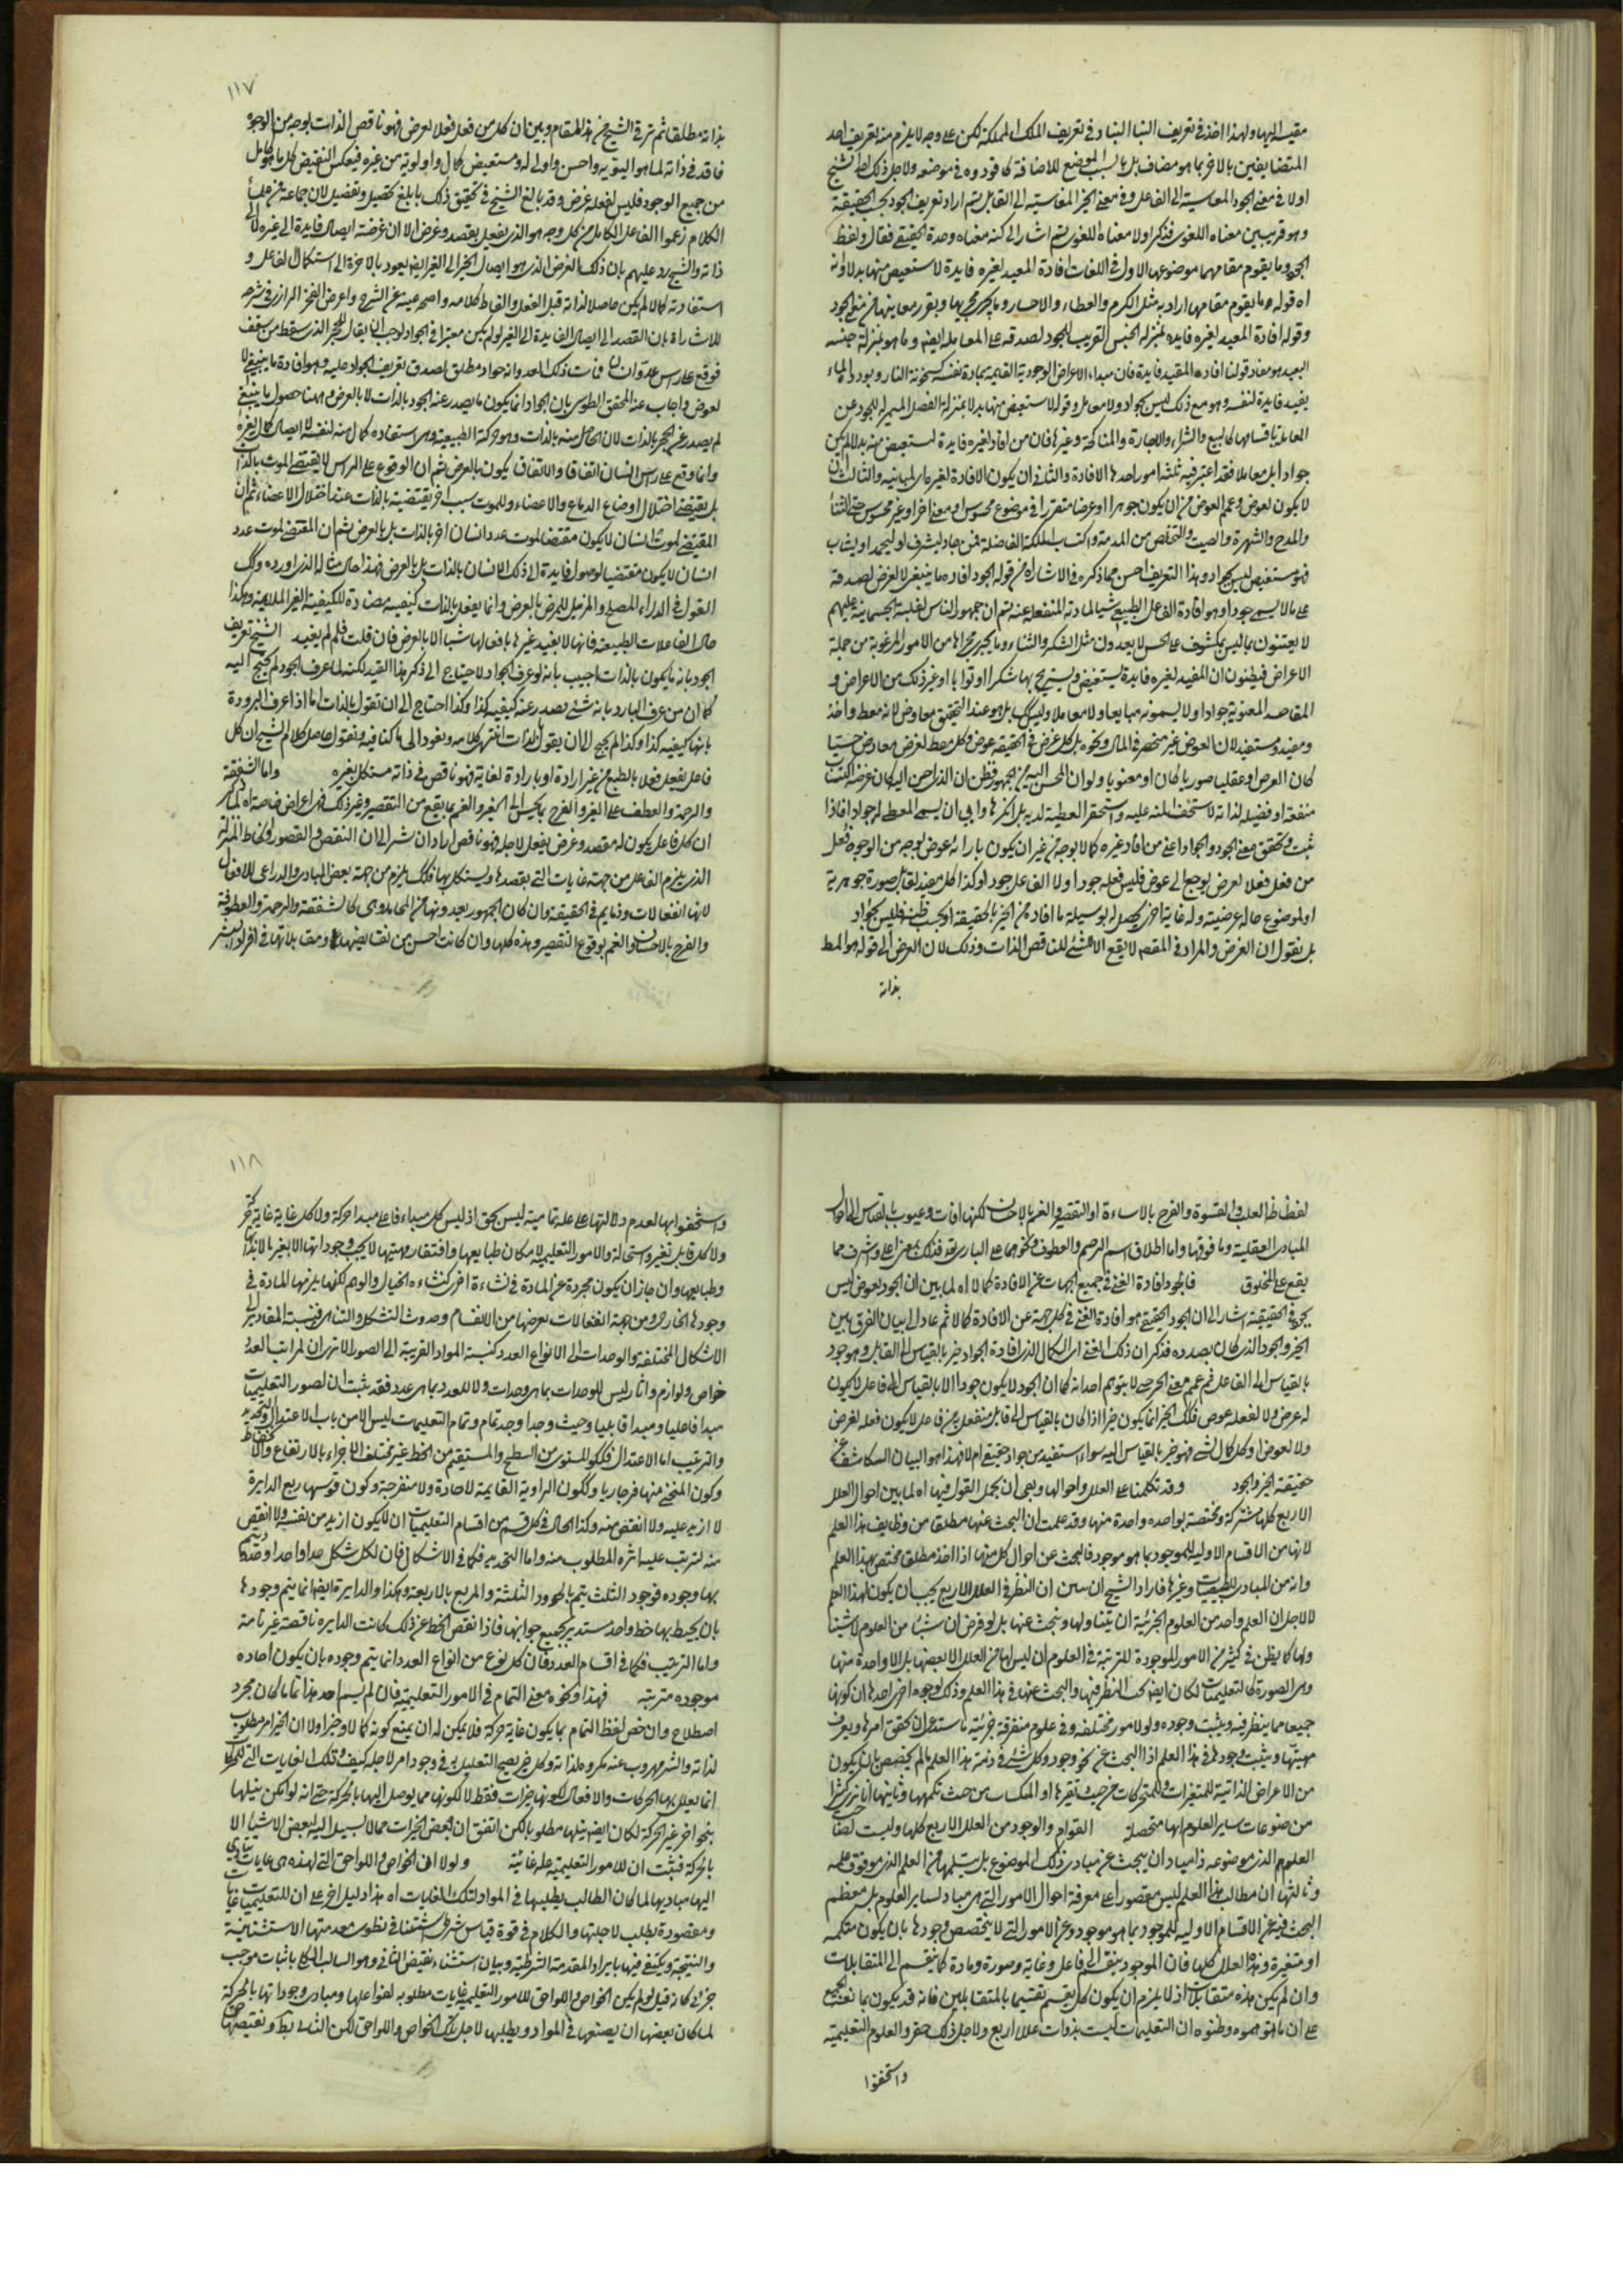 مقيسا اليها ولهذا اخذ في تعريف البنا البناء وفي تعريف الملك المملكة لكن على وجه لا يلزم منه تعريف احد
المتضايفين بالاخر بما هو مضاف بل بالسبب الموضع للاضافة كما قرروه في موضعه ولاجل ذلك الشيخ
اولا في معنى الجود المقايسة الى الفاعل وفي معنى الخير المقايسة الى القابل ثم اراد تعريف الجود بحسب الحقيقة
وهو قريب من معناه اللغوى فذكر اولا معناه اللغوى ثم اشار الى كنه معناه وحده الحقيقي فقال ولفظ
الجود وما يقوم مقامها موضوعها الاول في اللغات افادة المفيد لغيره فايدة لا يستعيض منها بدلا وانه
اه قوله وما يقوم مقامها اراد به مثل الكرم والعطاء والاحسان وما يجرى مجريها
وقوله افادة المفيد لغيره فايدة بمنزلة الجنس القريب للجود لصدقه على المعاملة ايضا وما هو بمنزلة جنسه
البعيد هو مفاد قولنا افادة المفيد فايدة فان مبداء الاعراض الوجودية القايمة بمادة نفسه كسخونة النار وبرودة الماء
يفيد فايدة لنفسه وهو مع ذلك ليس بجواد ولا معامل وقوله لا يستعيض منها بدلا بمنزلة الفصل المميز له للجود عن
المعاملة باقسامها كالبيع والشراء والاجارة والمناكحة وغيرها فان من افاد لغيره فايدة ليستعيض منه بدلا لم يكن
جوادا بل معاملا فقد اعتبر فيه ثلثة امور احدها الافادة والثاني ان يكون الافادة لغيره والثالث ان
لا يكون لعوض وعمم العوض من ان يكون جوهرا او عرضا متقررا في موضوع محسوس او معنى اخر او غير محسوس حتى الثناء
والمدح والشهرة والصيت والتخلص من المذمة واكتساب الملكة الفاضلة فمن جاد ليشرف او ليحمد او يثاب
فهو مستعيض ليس بجواد وهذا التعريف احسن مما ذكره في الاشارات من قوله الجود افادة ما ينبغي لا لغرض لصدقه
على ما لا يسمى جودا وهو افادة الفاعل الطبيعي شيئا لمادته المنفعلة عنه ثم ان جمهور الناس لغلبة الجسمانية عليهم
لا يعتنون بما ليس بمكشوف على الحس لا يعدون مثل الشكر والثناء وما يجرى مجراها من الامور المرغوبة من جملة
الاعراض فيظنون ان المفيد لغيره فايدة يستفيض ويستربح بها شكرا او ثوابا او غير ذلك من الاعراض و
المقاصد المعنوية جوادا ولا يسمونه مبايعا ولا معاملا وليس كك بل هو عند التحقيق معاوض لانه معط واخذ
ومفيد ومستفيد لان العوض غير منحصر في المال ونحوه بل كل غرض في الحقيقة عوض وكل معط لغرض معاوض حسيا
كان الغرض او عقليا صوريا كان او معنويا ولو ان المحسن اليه من الجمهور فطن ان الذى احسن اليه كان غرضه اكتساب
منفعة او فضيلة لذاته لاستخف المنة عليه واستحقر العطية لديه بل انكرها وابى ان يسمى المعطى له جوادا فاذا
ثبت وتحقق معنى الجود والجواد اعنى من افاد غيره كمالا بوجه من غير ان يكون بازائه عوض بوجه من الوجوه فكل
من فعل فعلا لغرض يرجع الى عوض فليس فعله جودا ولا الفاعل جوادا وكذا كل مفيد لقابل صورة جوهرية
او لموضوع حالة عرضية وله غاية اخرى يحصل له بوسيلة ما افاده من الخير بالحقيقة او بحسب ظنه فليس بجواد
بل نقول ان الغرض والمراد في المقصد لا يقع الا للشئ للناقص الذات وذلك لان الغرض الى قوله هو المط
بذاته
١١٧
بذاته مطلقا ثم ترقى الشيخ من هذا المقام وبين ان كل من فعل فعلا لغرض فهو ناقص الذات بوجه من الوجوه
فاقد في ذاته لما هو اليق به واحسن واولى له ومستعيض كمال واولوية من غيره فبعكس النقيض كل ما هو كامل
من جميع الوجوه فليس لفعله غرض وقد بالغ الشيخ في تحقيق ذلك بابلغ تحصيل وتفصيل لان جماعة من علماء
الكلام زعموا الفاعل الكامل من كل وجه هو الذى يفعل بقصد وغرض الا ان غرضه ايصال فايدة الى غيره لا الى
ذاته والشيخ رد عليهم بان ذلك الغرض الذى هو ايصال الخير الى الغير ايضا يعود بالاخرة الى استكمال الفاعل و
استفادته كمالا لم يكن حاصلا لذاته قبل الفعل والفاظ كلامه واضحة غنية عن الشرح واعرض الفخر الرازى في شرحه
للاشارات بان القصد الى ايصال الفايدة الى الغير لو لم يكن معتبرا في الجواد لوجب ان يقال للحجر الذى سقط من سقف
فوقع على راس عدو انسان فمات ذلك العدو انه جواد مطلق لصدق تعريف الجواد عليه وهو افادة ما ينبغي لا
لعوض واجاب عنه المحقق الطوسى بان الجواد انما يكون ما يصدر عنه الجود بالذات لا بالعرض وههنا حصول ما ينبغي
لم يصدر عن الحجر بالذات لان الحاصل منه بالذات وهو حركته الطبيعية وهى استفادة كمال منه لنفسه لا ايصال كمال لغيره
وانما وقع على راس انسان اتفاقا والاتفاق يكون بالعرض ثم ان الوقوع على الراس لا يقتضي الموت بالذات
بل يقتضي اختلال اوضاع الدماغ والاعضاء وللموت سبب اخر يقتضيه بالذات عند اختلال الاعضاء ثم ان
المقتضي لموت انسان لا يكون مقتضيا لموت عدو انسان اخر بالذات بل بالعرض ثم ان المقتضي لموت عدو
انسان لا يكون مقتضيا لوصول فايدة الى ذلك الانسان بالذات بل بالعرض فهذا حال مثاله الذى اورده وكك
القول في الدواء المصحح والمزيل للمرض بالعرض وانما يفعل بالذات كيفية مضادة للكيفية الغير الملايمة وهكذا
حال الفاعلات الطبيعية فانها لا يفيد غيرها بافعالها شيئا الا بالعرض فان قلت فلم لم يقيد الشيخ تعريف
الجود بانه ما يكون بالذات اجيب بانه لو عرف الجواد لاحتاج الى ذكر هذا القيد لكنه لما عرف الجود لم يحتج اليه
كما ان من عرف البارد بانه شئ تصدر عنه كيفية كذا وكذا احتاج الى ان تقول بالذات اما اذا عرف البرودة
بانها كيفية كذا وكذا لم يحتج الى ان يقول بالذات انتهى كلامه ونعود الى ما كنا فيه ونقول حاصل كلام الشيخ ان كل
فاعل يفعل فعلا بالطبع من غير ارادة او بارادة لغاية فهو ناقص في ذاته مستكمل بغيره واما الشفقة
والرحمة والعطف على الغير والفرح بما يحسن الى الغير والغم بما يقع من التقصير وغير ذلك فهى اغراض خاصة اه لما ذكر
ان كل فاعل يكون له مقصد وغرض يفعل لاجله فهو ناقص اراد ان يشير الى ان النقص والقصور وانحطاط المنزلة
الذى يلزم الفاعل من جهة غايات التى يقصدها ويستكمل بها فكك يلزم من جهة بعض المبادى والدواعى للافعال
لانها انفعالات وذمايم في الحقيقة وان كان الجمهور يعدونها من المحامد وهى كالشفقة والرحمة والعطوفة
والفرح بالاحسان والغم بوقوع التقصير وهذه كلها وان كانت احسن من نقايضها ومقابلاتها في افراد البشر
لفظاظة القلب والقسوة والفرح بالاساءة او التقصير والغم بالاحسان لكنها افات وعيوب بالقياس الى احوال
المبادى العقلية وما فوقها واما اطلاق اسم الرحيم والعطوف ونحوهما على البارى تع فذلك بمعنى اعلى واشرف مما
يقع على المخلوق فالجود افادة الغنى في جميع الجهات عن الافادة كمالا اه لما بين ان الجود لعوض ليس
بجود في الحقيقة اشار الى ان الجود الحقيقي هو افادة الغنى في كل جهة عن الافادة كمالا ثم عاد الى بيان الفرق بين
الخير والجود الذى كان بصدده فذكر ان ذلك المعنى اى الكمال الذى افاده الجواد خير بالقياس الى القابل وهو جود
بالقياس الى الفاعل ثم عمم معنى الخير حتى لا يتوهم احد انه كما ان الجود لا يكون جودا الا بالقياس الى فاعل لا يكون
له غرض ولا لفعله عوض فكك الخير انما يكون خيرا اذا كان بالقياس الى قابل منفعل من فاعل لا يكون فعله لغرض
ولا لعوض اذ كل كمال لشئ فهو خير بالقياس اليه سواء استفيد من جواد حقيقي ام لا فهذا هو البيان الكاشف عن
حقيقة الخير والجود وقد تكلمنا على العلل واحوالها وبقى ان نجمل القول فيها اه لما بين احوال العلل
الاربع كلها مشتركة ومختصة بواحدة واحدة منها وقد علمت ان البحث عنها مطلقا من وظايف هذا العلم
لانها من الاقسام الاولية للموجود بما هو موجود فالبحث عن احوال كل منها اذا اخذ مطلقا مختص بهذا العلم
وانه من المبادى للطبيعيات وغيرها فاراد الشيخ ان يبين ان النظر في العلل الاربع يجب ان يكون لهذا العلم
لا لاجل ان العلم واحد من العلوم الجزئية ان يتناولها ويبحث عنها بل لو فرض ان شيئا من العلوم لا شيئا
ولها كما يظن في كثير من الامور الموجودة المترتبة في العلوم ان ليس لها من العلل الا بعضها بل الا واحدة منها
وهى الصورة كالتعليميات لكان ايضا يجب النظر فيها والبحث عنها في هذا العلم وذلك لوجوه اخرى احدها ان كونها
جميعا مما ينظر فيه ويثبت وجوده ولو لامور مختلفة وفي علوم متفرقة جزئية ما يستدعى ان يحقق امرها ويعرف
مهيتها ويثبت وجودها في هذا العلم اذ البحث عن نحو وجود كل شئ في ذمة هذا العلم ما لم يخصص بان يكون
من الاعراض الذاتية للمتغيرات والمتحركات من حيث تغيرها او المتكممات من حيث تكممها وثانيها انا نرى كثيرا
من موضوعات ساير العلوم انها متحصلة القوام والوجود من العلل الاربع كلها وليست لصاحب
العلوم الذى موضوعه ذا مباد ان يبحث عن مبادى ذلك الموضوع بل يتسلمها من العلم الذى هو فوق علمه
وثالثها ان مطالب هذا العلم ليس مقصورا على معرفة احوال الامور التى هى مباد لساير العلوم بل معظم
البحث فيه عن الاقسام الاولية للموجود بما هو موجود وعن الامور التى لا يتخصص وجودها بان يكون متكممة
او متغيرة وهذه العلل كلها فان الموجود ينقسم الى فاعل وغاية وصورة ومادة كما ينقسم الى المتقابلات
وان لم يكن هذه متقابلات اذ لا يلزم ان يكون كل تقسيم تقسيما بالمتقابلين فانه قد يكون بما تعمه الجميع
على ان ما توهموه وظنوه ان التعليميات ليست بذوات علل اربع ولاجل ذلك حقروا العلوم التعليمية
واستخفوا
١١٨
واستخفوا بها لعدم دلالتها على علة تمامية ليس بحق اذ ليس كل مبداء فاعلى مبداء حركة ولا كل غاية غاية حركة
ولا كل قابل تغير واستحالة والامور التعليمية لامكان طبايعها وافتقار مهيتها لا يجب وجوداتها الا بغيرها
وطبايعها وان جاز ان يكون مجردة عن المادة في نشاءة اخرى كنشاءة الخيال والوهم لكنها يلزمها المادة في
وجودها الخارجى ومن جهة انفعالات يعرضها من الانقسام وحدوث التشكل والتناهى فنسبة المقادير الى
الاشكال المختلفة والوحدات الى الانواع العدد كنسبة المواد القريبة الى الصور الا ترى ان لمراتب العدد
خواص ولوازم واثار ليس للوحدات بما هى وحدات ولا للعدد بما هى عدد فقد ثبت ان لصور التعليميات
مبدا فاعليا ومبدا قابليا وحيث وجدا وجد تمام وتمام التعليميات ليس الا من باب الاعتدال والتحديد
والترتيب اما الاعتدال فككون المستوى من السطح والمستقيم من الخط غير مختلف الاجزاء بالارتفاع والانخفاض
وكون المنحنى منها فرجاريا وككون الزاوية القايمة لا حادة ولا منفرجة وكون قوسها ربع الدايرة
لا ازيد عليه ولا انقص منه وكذا الحال في كل قسم من اقسام التعليميات ان لا يكون ازيد من نفسه ولا انقص
منه لترتب عليه اثره المطلوب منه واما التحديد فكما في الاشكال فان لكل شكل حدا واحدا او حدودا يتم
بها وجوده فوجود المثلث يتم بالحدود الثلثة والمربع بالاربعة وهكذا والدايرة ايضا انما يتم وجودها
بان يحيط بها خط واحد مستدير بجميع جوانبها فاذا نقص الخط عن ذلك كانت الدايرة ناقصة غير تامة
واما الترتيب فكما في اقسام العدد فان كل نوع من انواع العدد انما يتم وجوده بان يكون احاده
موجودة مترتبة فهذا ونحوه معنى التمام في الامور التعليمية فان لم يسم احد هذا تماما كان مجرد
اصطلاح وان خص لفظ التمام بما يكون غاية حركة فلا يمكن له ان يمنع كونه كمالا وخيرا ولا ان الخير امر مطلوب
لذاته والشر مهروب عنه مكروه لذاته وكل خير يصح التعليل به في وجود امر لاجله كيف وتلك الغايات التى للحركات
انما يعلل بها الحركات والافعال لكونها خيرات فقط لا لكونها مما يوصل اليها بالحركة حتى انه لو امكن نيلها
بنحو اخر غير الحركة لكان ايضا نيلها مطلوبا لكن اتفق ان بعض الخيرات مما لا سبيل اليه لبعض الاشياء الا
بالحركة فثبت ان للامور التعليمية علة غائية ولولا ان الخواص واللواحق التى لهذه هى غايات يتادى
اليها مباديها لما كان الطالب يطلبها في المواد لتلك الغايات اه هذا دليل اخر على ان للتعليميات غايات
ومقصودة يطلب لاجلها والكلام في قوة قياس شرطى استثنائى مطوى مقدمتها الاستثنائية
والنتيجة ويكتفى فيها بايراد المقدمة الشرطية وبيان استثناء نقيض التالى وهو السالب الكلى باثبات موجب
جزئى كانه قيل لو لم يكن الخواص واللواحق للامور التعليمية غايات مطلوبة لفواعلها ومبادى وجوداتها بالحركة
لما كان بعضها ان يصنعها في المواد ويطلبها لاجل تلك الخواص واللواحق لكن التالى بط ونقيضها